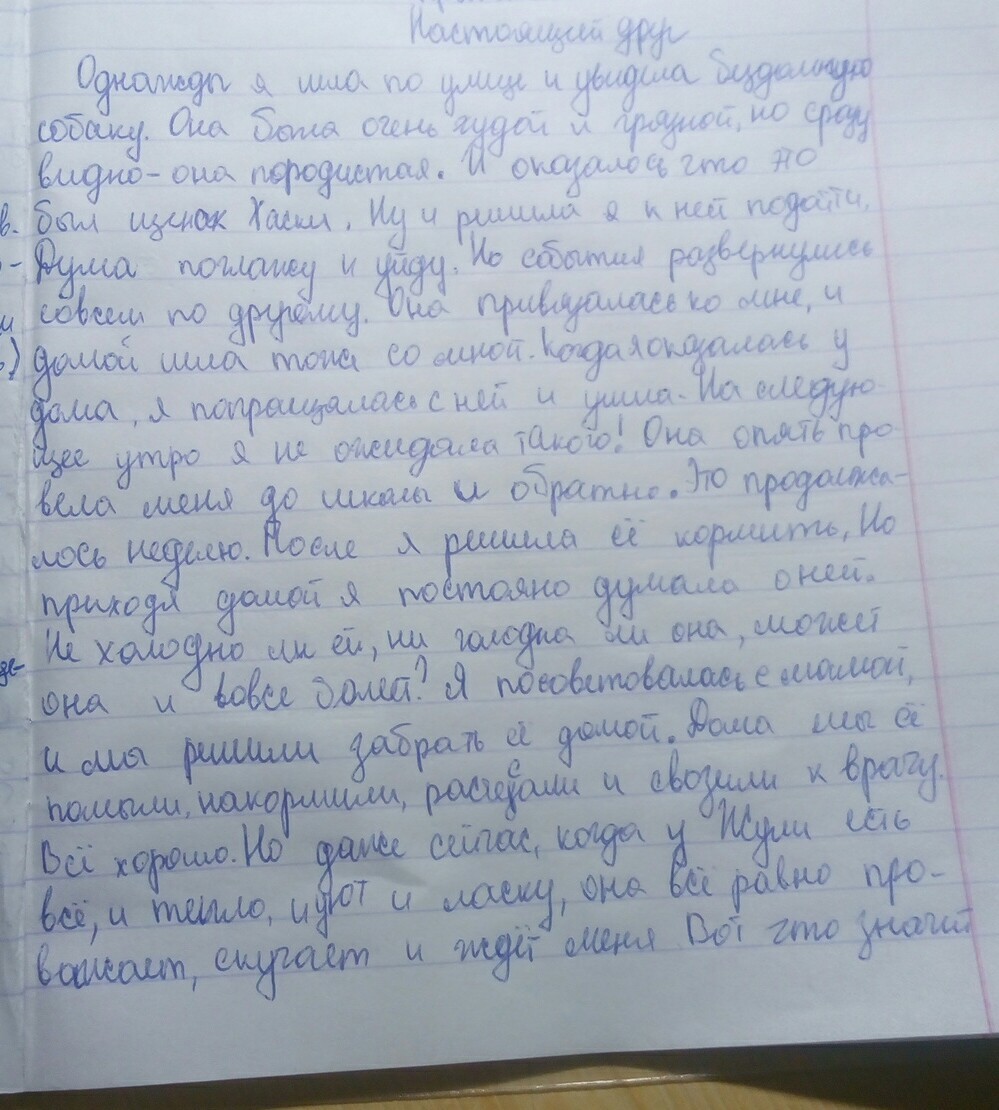 Настоящий друг
Однажды я шла по улице и увидела бездомную
собаку. Она была очень худой и грязной, но сразу
видно - она породистая. И оказалось что это
в. был щенок Хаски. Ну и решила я к ней подойти.
- Дума поглажу и уйду. Но события развернулись
и совсем по другому. Она привязалась ко мне, и
) домой шла тоже со мной. Когда я оказалась у
дома, я попращалась с ней и ушла. На следую
щее утро я не ожидала такого! Она опять про
вела меня до школы и обратно. Это продолжа-
лось неделю. После я решила её кормить, Но
приходя домой я постояно думала о ней.
Не холодно ли ей, ни голодна ли она, может
она и вовсе болеет? Я посоветовалась с мамой,
и мы решили забрать её домой. Дома мы её
помыли, накормили, расчесали и свозили к врачу.
Всё хорошо. Но даже сейчас, когда у Жули есть
всё, и тепло, и уют и ласку, она всё равно про-
вожает, скучает и ждёт меня Вот что значит